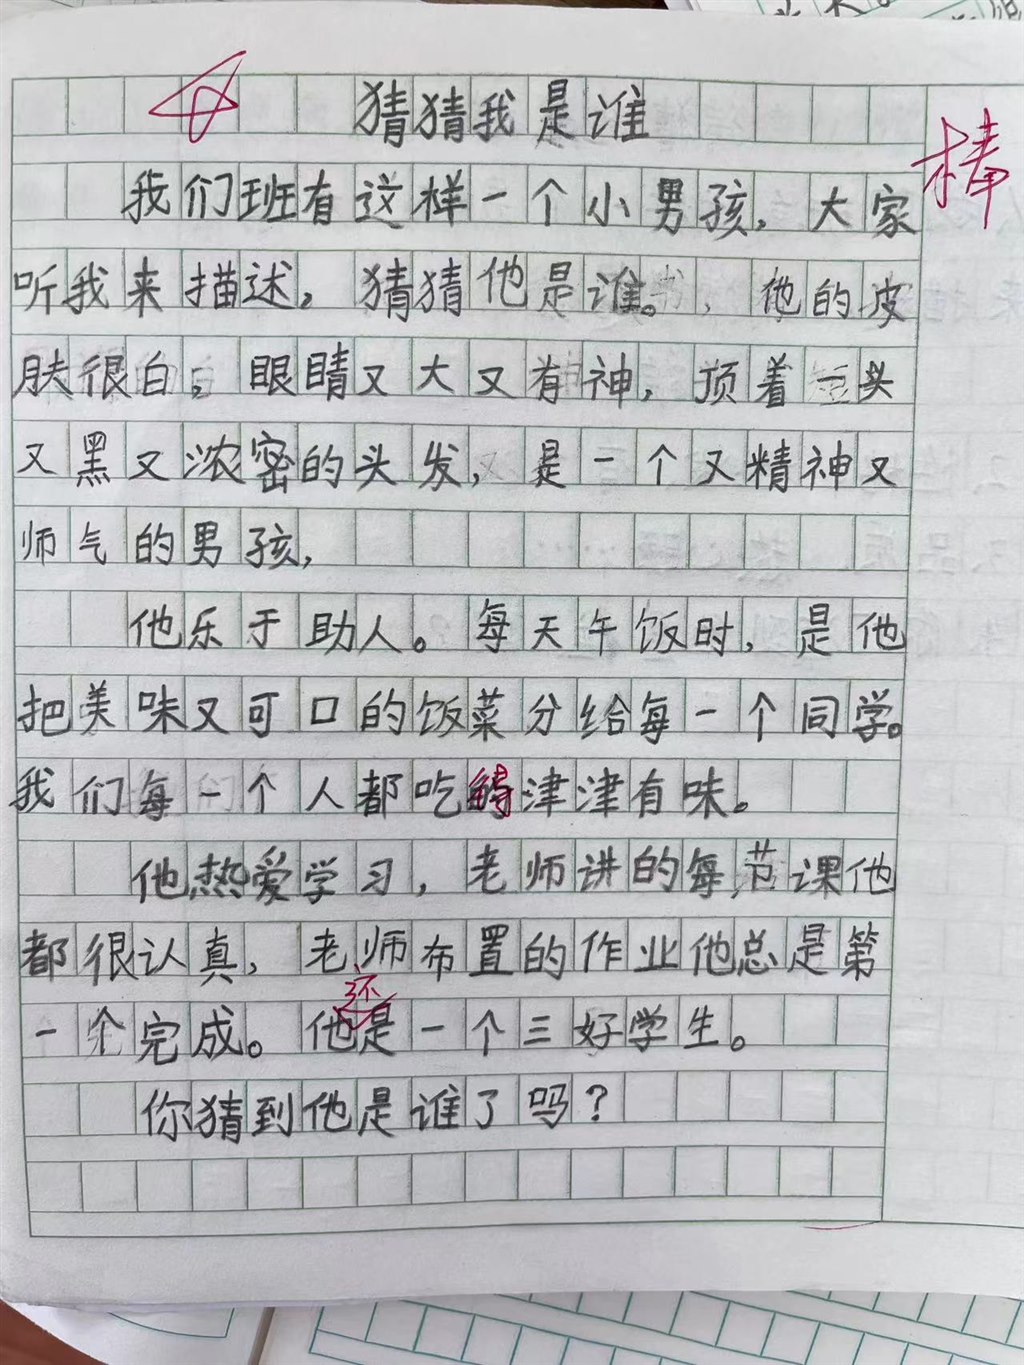 猜猜我是谁
棒
我们班有这样一个小男孩，大家
听我来描述，猜猜他是谁。他的皮
肤很白。眼睛又大又有神，顶着一头
又黑又浓密的头发，是一个又精神又
师气的男孩，
他乐于助人。每天午饭时，是他
把美味又可口的饭菜分给每一个同学。
我们每一个人都吃得津津有味。
他热爱学习，老师讲的每节课他
都很认真，老师布置的作业他总是第
还
一个完成。他是一个三好学生。
你猜到他是谁了吗？